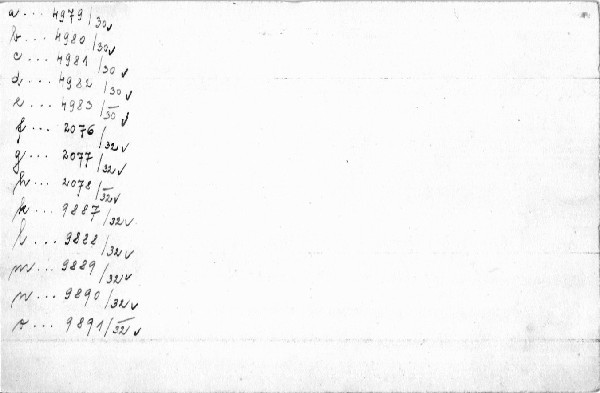 a ... 4979/30 ✓
b ... 4980/30 ✓
c ... 4981/30 ✓
d ... 4982/30 ✓
e ... 4983/30 ✓
f ... 2076/32 ✓
g ... 2077/32 ✓
h ... 2078/32 ✓
k ... 9887/32 ✓
l ... 9888/32 ✓
m ... 9889/32 ✓
n ... 9890/32 ✓
o ... 9891/32 ✓